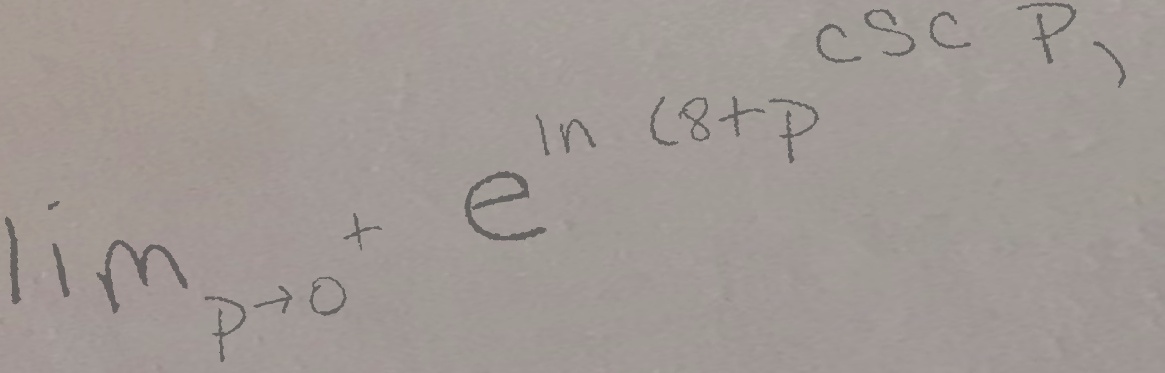 lim_{p→0^+} e^{ln (8+p^{csc p})}